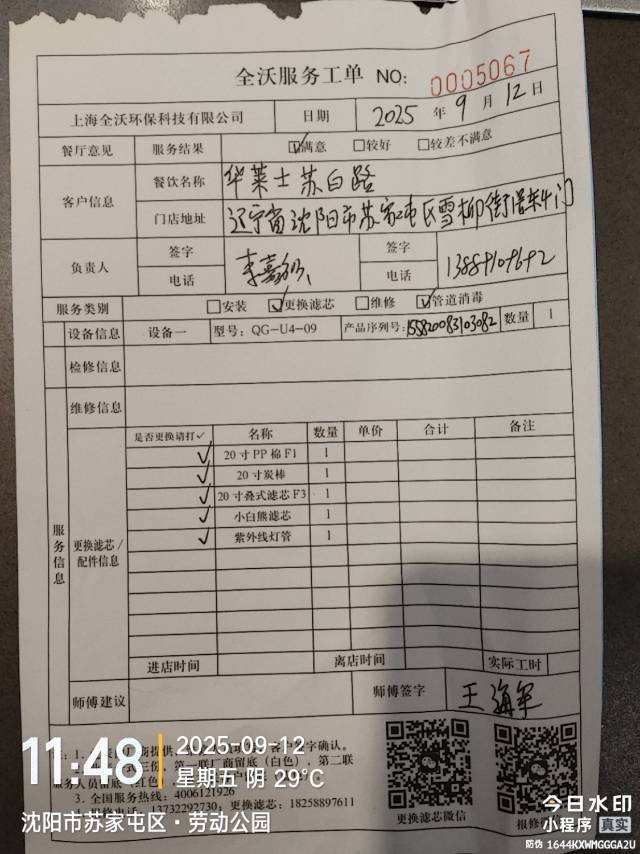 全沃服务工单 NO: 0005067
上海全沃环保科技有限公司 日期 2025年9月12日
餐厅意见 服务结果 ☑满意 □较好 □较差不满意
客户信息 餐饮名称 华莱士苏白路
门店地址 辽宁省沈阳市苏家屯区雪柳街
负责人 签字 签字
电话 电话
服务类别 □安装 ☑更换滤芯 □维修 ☑管道消毒
设备信息 设备一 型号: QG-U4-09 产品序列号: 数量 1
检修信息
维修信息
服务信息
更换滤芯/配件信息
是否更换请打✓ 名称 数量 单价 合计 备注
✓ 20寸PP棉F1 1
✓ 20寸炭棒 1
✓ 20寸叠式滤芯F3 1
✓ 小白熊滤芯 1
✓ 紫外线灯管 1
进店时间 离店时间 实际工时
师傅建议 师傅签字 王海军
签字确认。
第一联厂商留底（白色），第二联
服务人员留底（红色）
3. 全国服务热线: 4006121926
13732292730; 更换滤芯: 18258897611
更换滤芯微信
11:48
2025-09-12
星期五 阴 29℃
沈阳市苏家屯区·劳动公园
今日水印
小程序 真实
防伪 1644KXWMGGGA2U